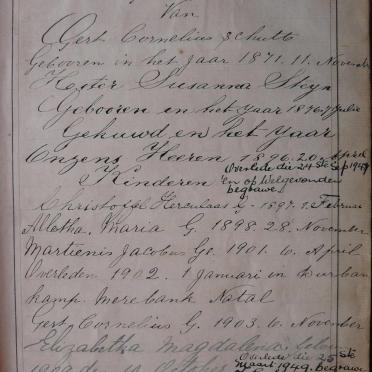 Van
Gert Cornelius Schutte
Gebooren in het Jaar 1871. 11. November
Hester Susanna Steyn
Gebooren in het Jaar 1876. 7 Julie
Gehuwd en het Jaar
Onzens Heeren 1896. 20. April
Overlede die 24 ste Sep 1949
Kinderen en op Welgevonden
begrawe.
Christoffel Herculaas 1897. 1. Februari
Alletha. Maria G. 1898. 28. November
Martienis Jacobus G. 1901. 6. April
Overleden 1902. 1 Januari in Durban
kamp. Merebank Natal
Gert Cornelius G. 1903. 6. November
Elizabetha Magdalena
Overlede die 25 ste
Maart 1949. Begrawe